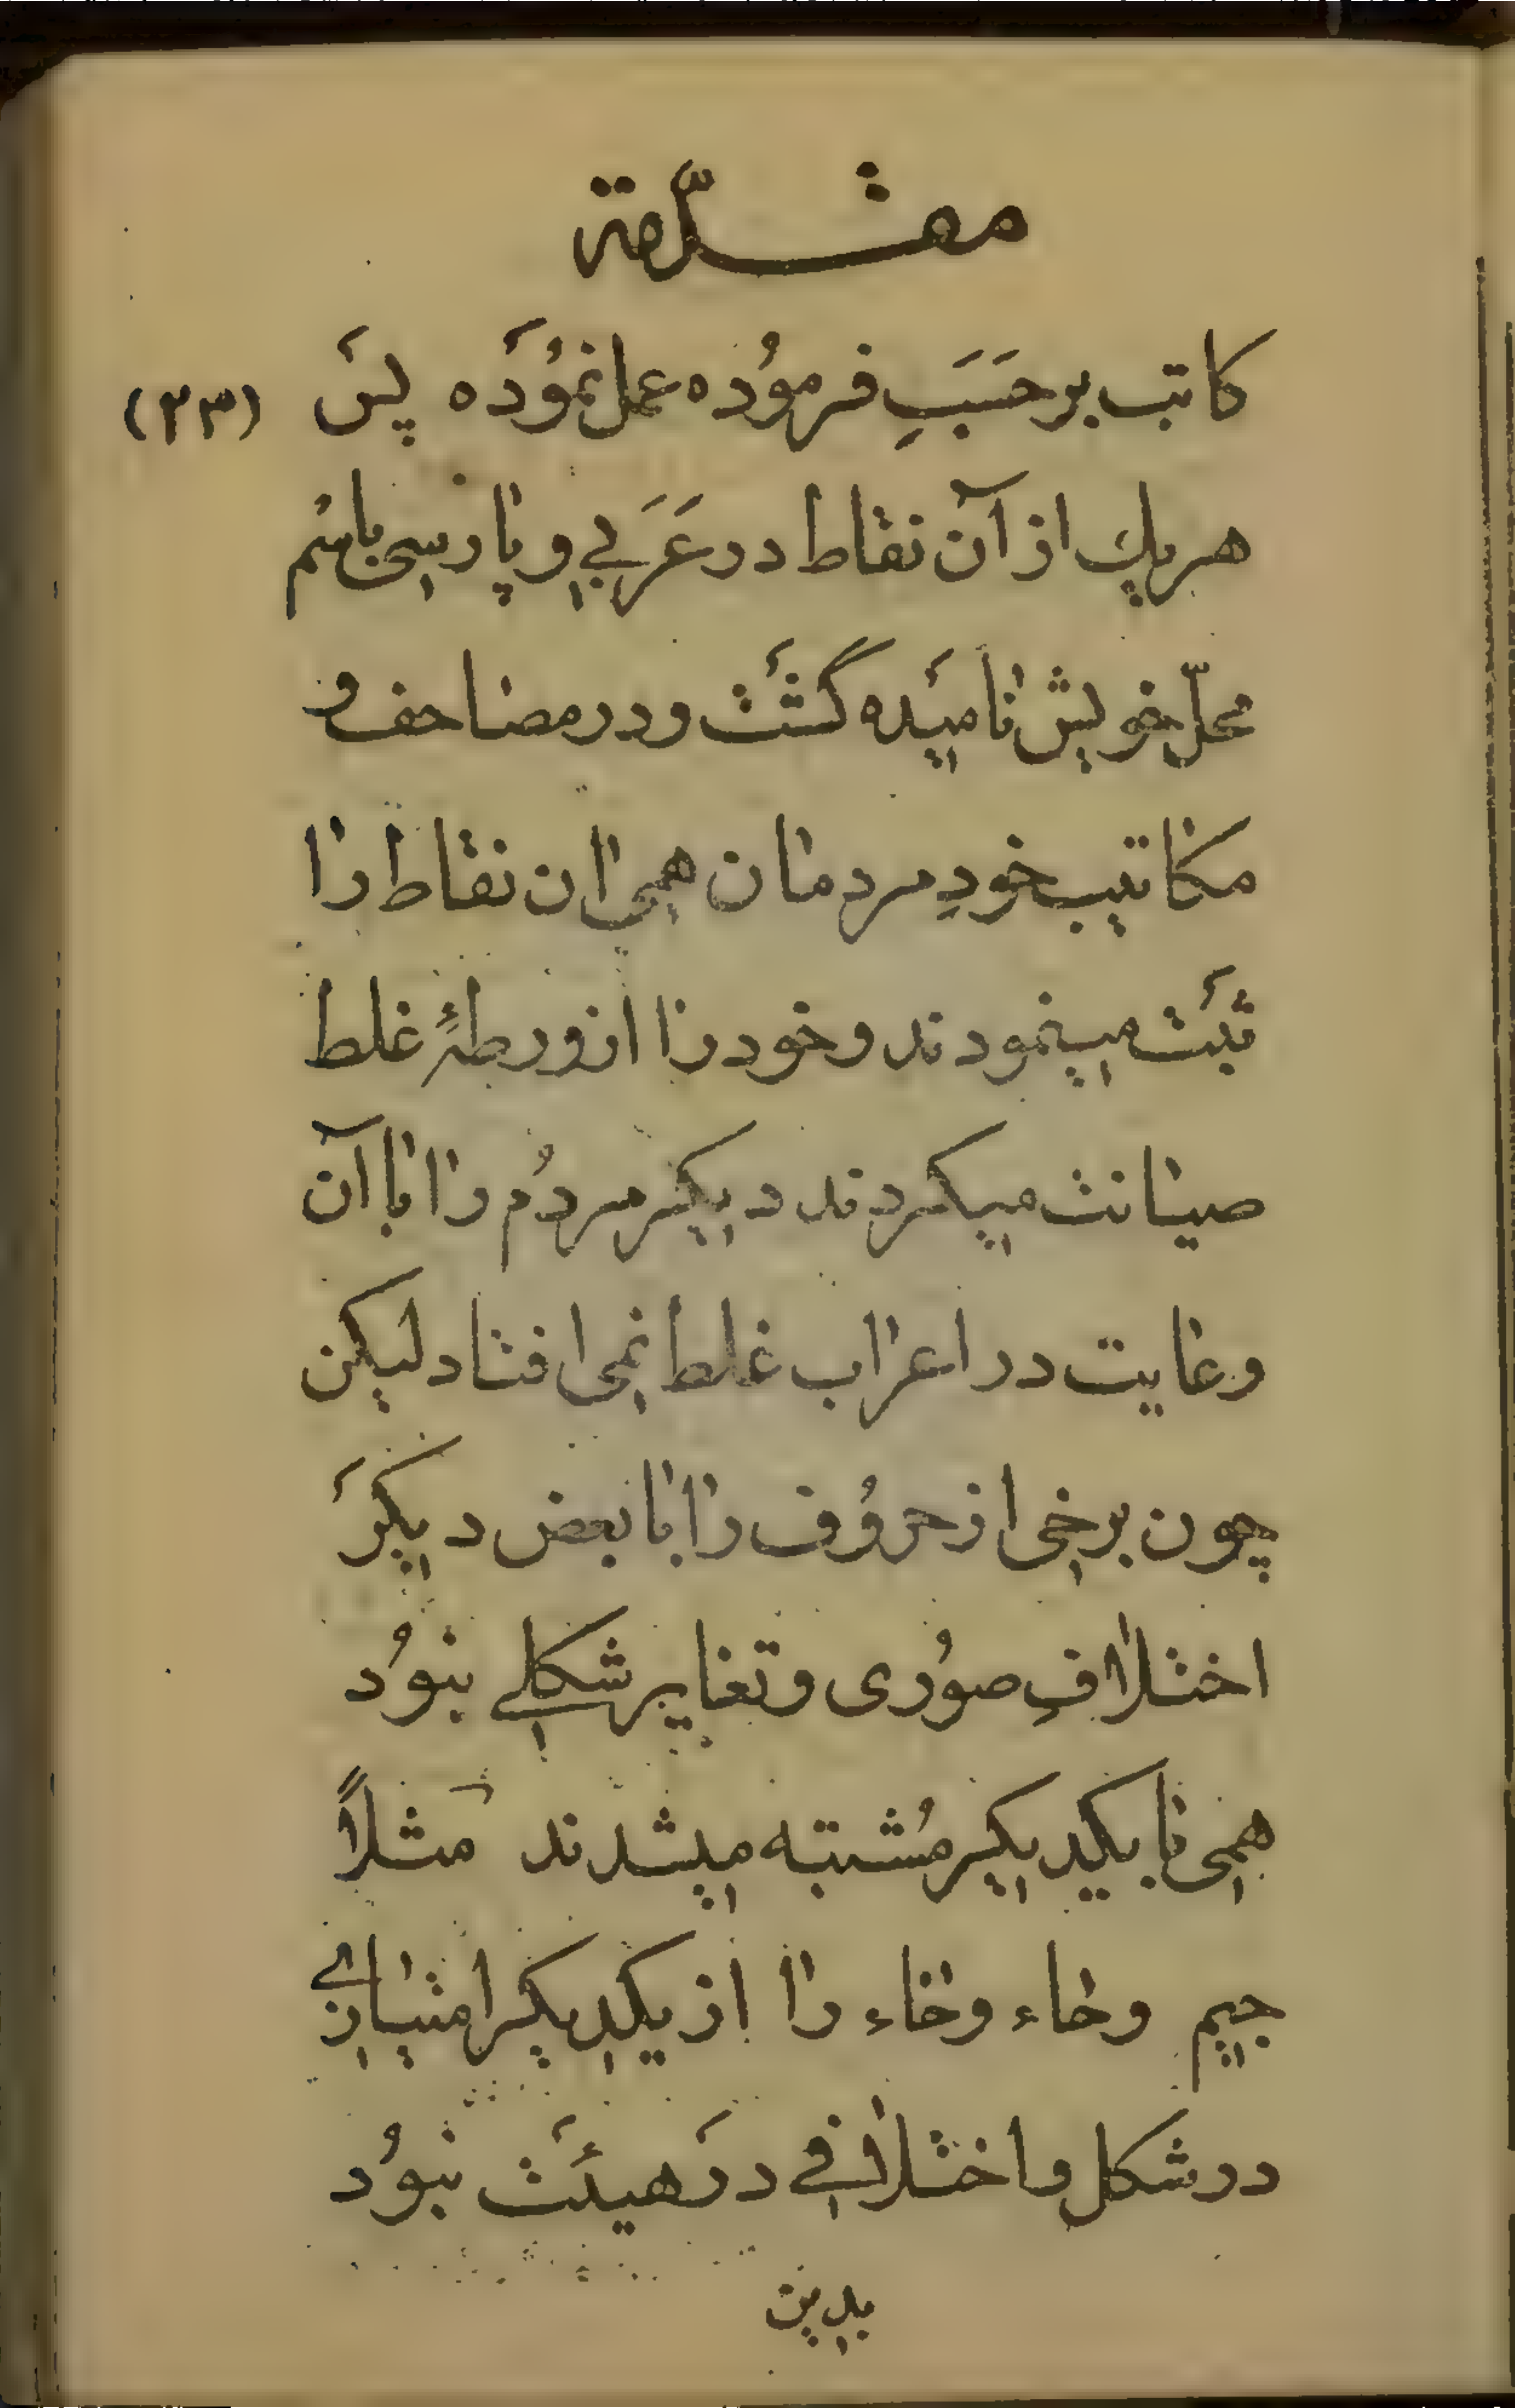 مقدّمة
كاتب بر حَسَبِ فرموُده عمل نموُدَه پسَ (٣٣)
هر يك از آن نقاط در عَرَبي و پارسي باسْم
محلّ خويش ناميَده گشتَ و در مصاحف و
مكاتيب خودِ مردمان همي ان نقاط را
ثبَت مينمودند و خود را از ورطهٔ غلط
صيانت ميكردند ديكر مردُم را با آن
رعايت در اعراب غلط نمي افتاد ليكن
چون برخي از حروُف را با بعض ديكرَ
اختلافِ صوُرى و تغاير شكلي نبوُد
همي با يكديكر مُشتبه ميشدند مثلاً
جيم و حاء و خاء را از يكديكر امتيازي
در شكل و اختلافي درَ هيئتَ نبوُد
بدين